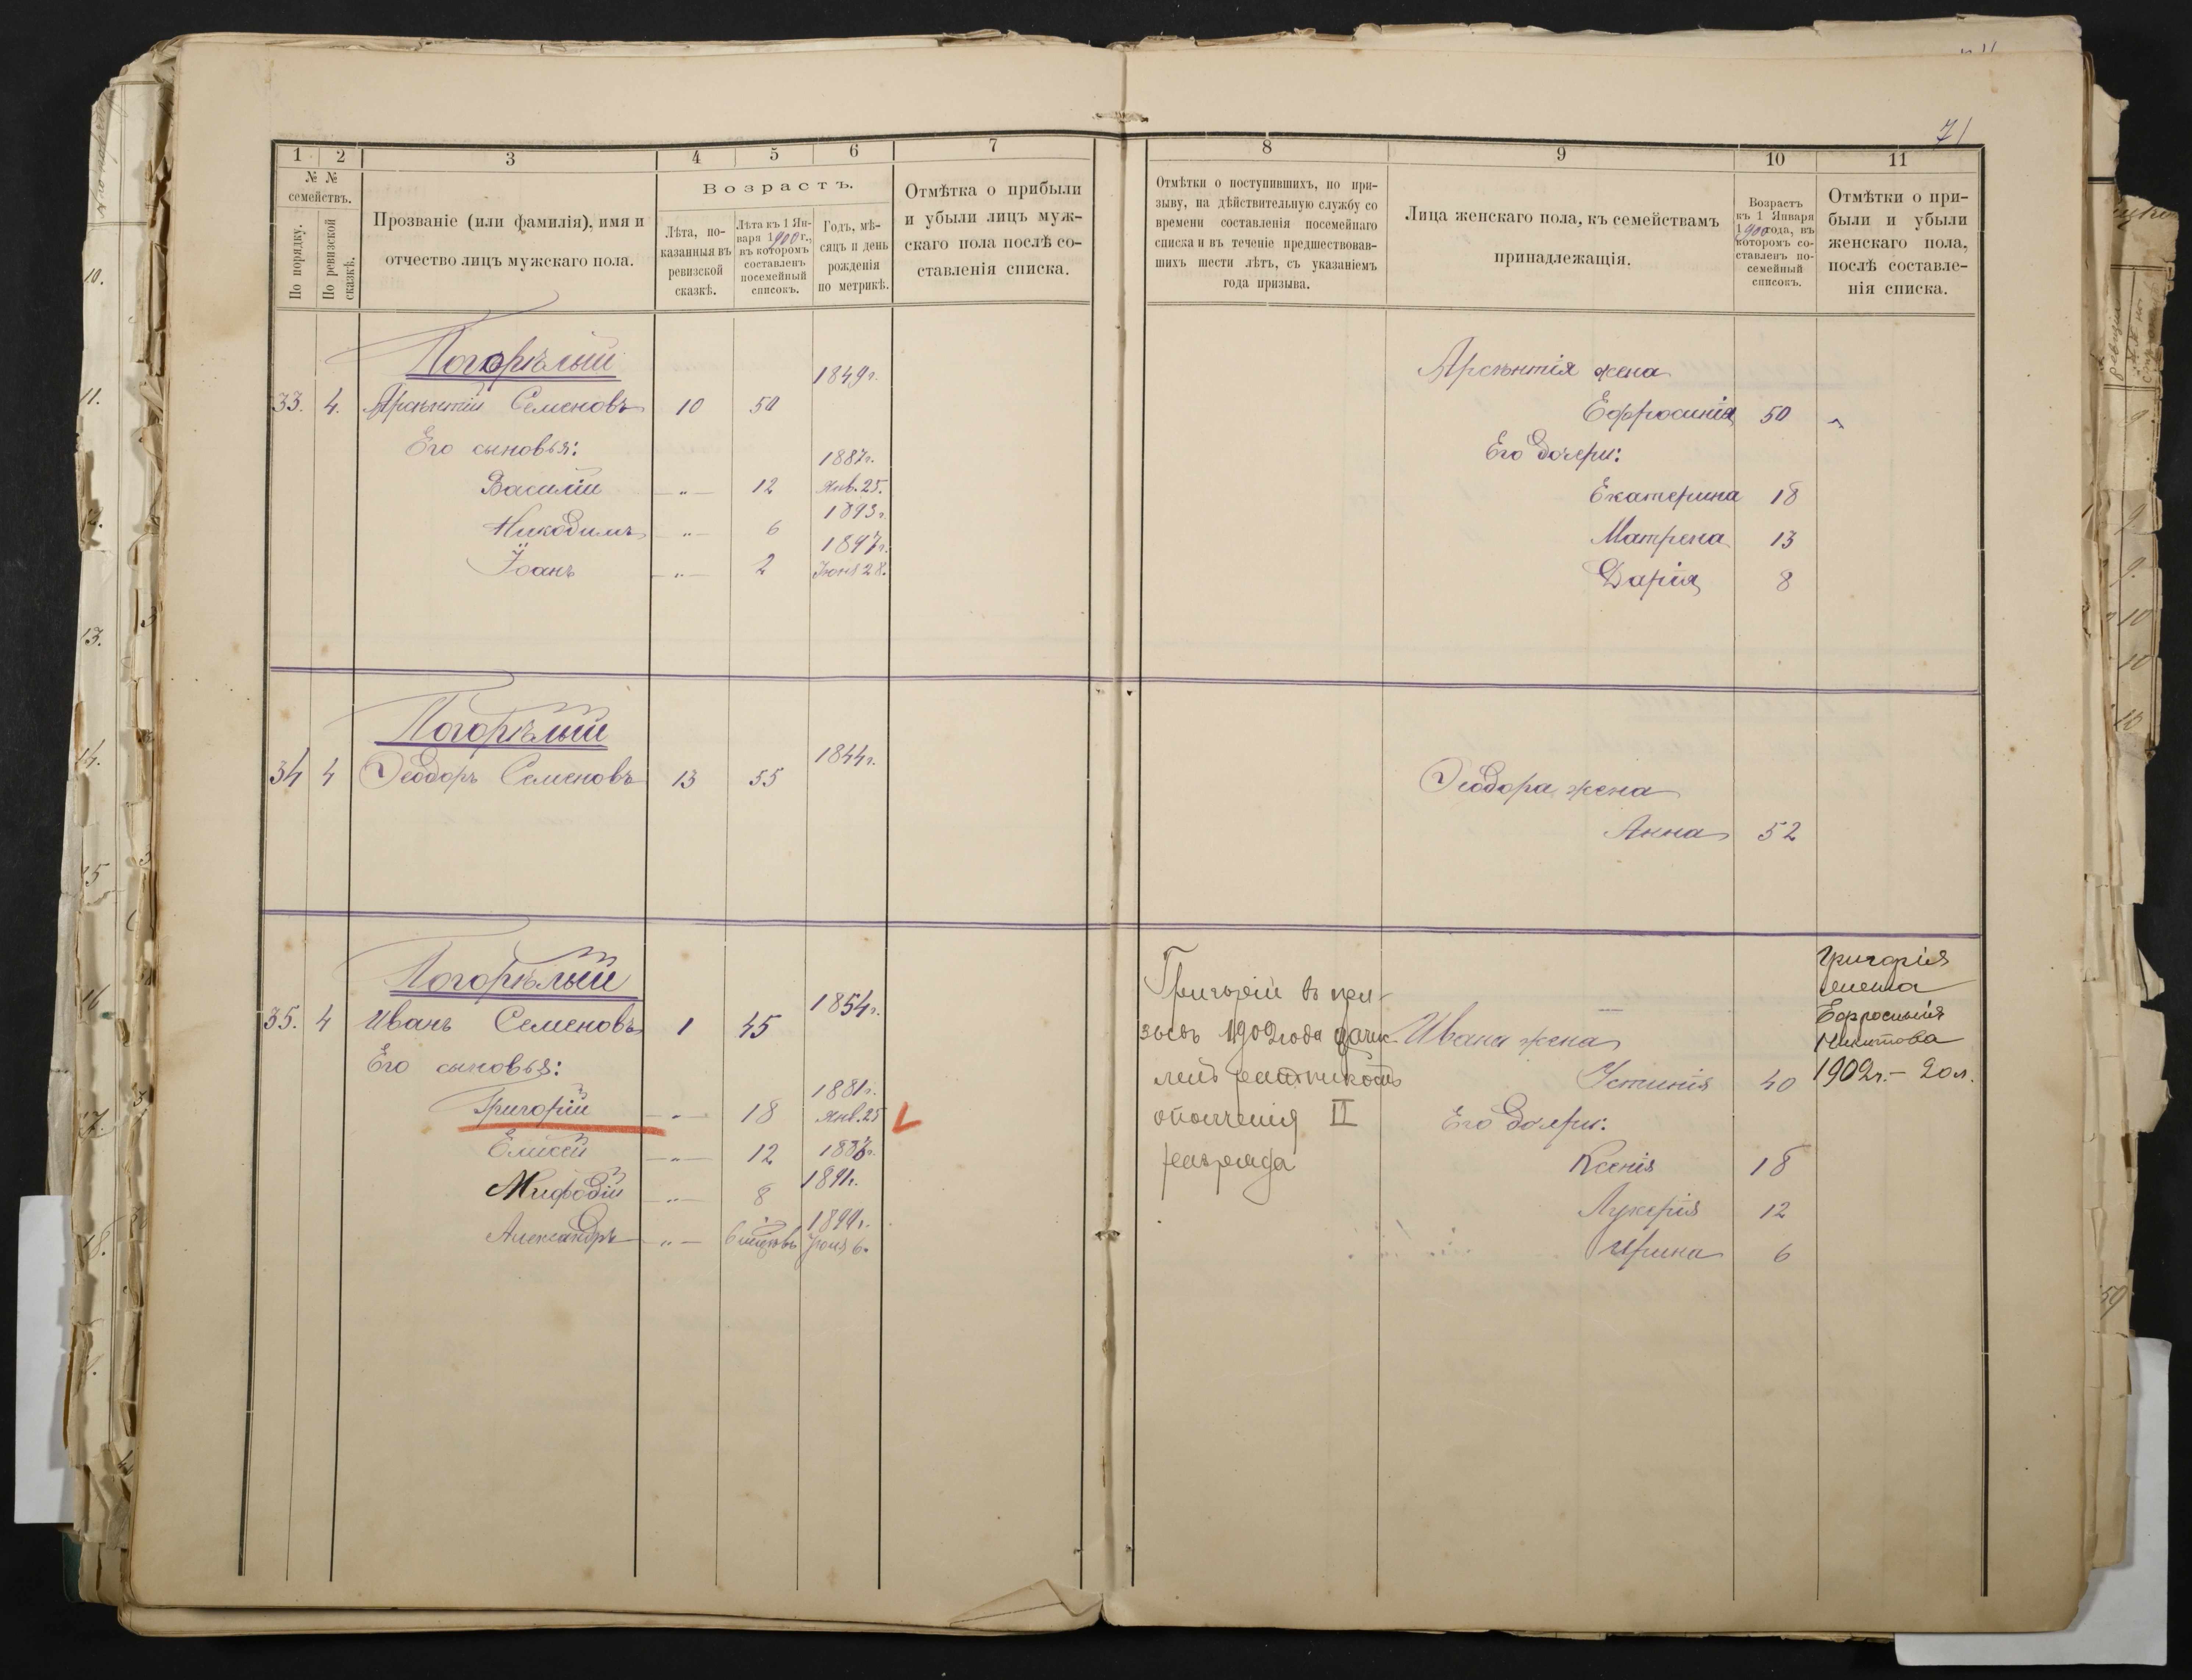 71
1 2 3 4 5 6 7
№ №
семействъ.
По порядку.
По ревизской
сказкѣ.
Прозваніе (или фамилія), имя и
отчество лицъ мужскаго пола.
Возрастъ.
Лѣта, по-
казанныя въ
ревизской
сказкѣ.
Лѣта къ 1 Ян-
варя 1900 г.,
въ которомъ
составленъ
посемейный
списокъ.
Годъ, мѣ-
сяцъ и день
рожденія
по метрикѣ.
Отмѣтка о прибыли
и убыли лицъ муж-
скаго пола послѣ со-
ставленія списка.
Погорѣлый
1849г.
33. 4. Арсентій Семеновъ 10 50
Его сыновья:
1887г.
Василій —„— 12 Янв. 25.
1893г.
Никодимъ —„— 6
1897г.
Іоанъ —„— 2 Іюня 28.
Погорѣлый
1844г.
34 4 Феодоръ Семеновъ 13 55
Погорѣлый
1854г.
35. 4 Иванъ Семеновъ 1 45
Его сыновья:
1881г.
Григорій —„— 18 Янв. 25
Елисей —„— 12
Мифодій —„— 8 1891г.
1899г.
Александръ —„— 6 Іюня 6.
8 9 10 11
Отмѣтки о поступившихъ, по при-
зыву, на дѣйствительную службу со
времени составленія посемейнаго
списка и въ теченіе предшествовав-
шихъ шести лѣтъ, съ указаніемъ
года призыва.
Лица женскаго пола, къ семействамъ
принадлежащія.
Возрастъ
къ 1 Января
1900 года, въ
которомъ со-
ставленъ по-
семейный
списокъ.
Отмѣтки о при-
были и убыли
женскаго пола,
послѣ составле-
нія списка.
Арсентія жена
Ефросинія 50
Его дочери:
Екатерина 18
Матрена 13
Дарія 8
Феодора жена
Анна 52
Григорій въ при-
зывъ 1902 года зачис-
ленъ ратникомъ
ополченія II
разряда
Ивана жена
Устинія 40
Его дочери:
Ксенія 18
Лукерія 12
Ирина 6
Григорія
жена
Ефросинія
Никитова
1902г. – 20 л.